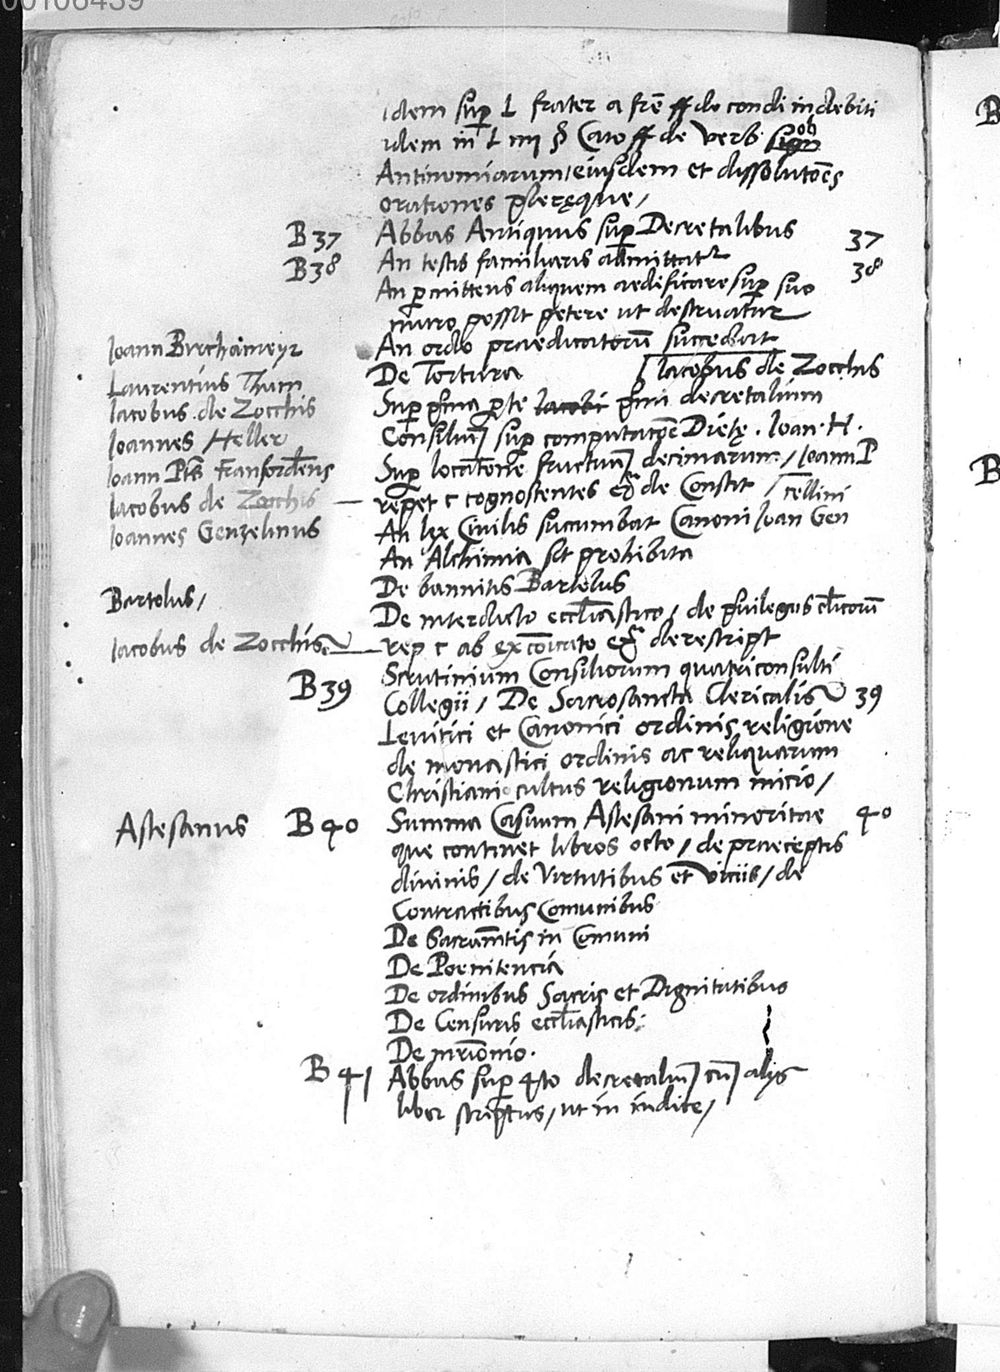 00106439
idem sup L frater a frē ff de condi indebiti
idem in L iiii § Cato ff de verb sign ob
Antinomiarum eiusdem et dissolutoēs
orationes pleręque /
B 37 Abbas Antiquus sup Decretalibus 37
B 38 An testis familiaris admittatr 38
An pmittens aliquem aedificare sup suo
muro possit petere ut destruatur
Ioann Birchameyr An ordo praedicatorū succedat
Laurentius Thum De Tortura Iacobus de Zocchis
Iacobus de Zocchis Sup prima pte Iacobi primi decretalium
Joannes Heller Consilium sup computatoē Dietę . Ioan . H .
Ioann Pts franforđens Sup locatione fructuum decimarum / Ioann P
Iacobus de Zocchis — repet c cognoscentes ex de Constit
Ioannes Genzelinus An lex Civilis sucumbat Canoni Joan Gen cellini
An Alchimia sit prohibita
Bartolus / De bannitis Bartolus
De interdicto eccliastico / de privilegiis clicorū
Iacobus de Zocchis — rep c ab excōicato ex de rescript
Scrutinium Consiliorum quatri consulti
B 39 Collegii / De Sacrosancta Clericalis 39
Levitici et Canonici ordinis religione
de monastici ordinis ac reliquarum
Christiani cultus religionum inicio /
Astesanus B 40 Summa Casuum Astesani minoritae 40
que continet libros octo / de praeceptis
divinis / de Virtutibus et viciis / de
Contractibus Comunibus
De Sacramētis in Comuni
De Poenitencia
De ordinibus Sacris et Dignitatibus
De Censuris eccliasticis :
De mr̄ionio .
B 41 Abbas sup 4to decretalium cum aliis
liber scriptus / ut in indice /
B
B